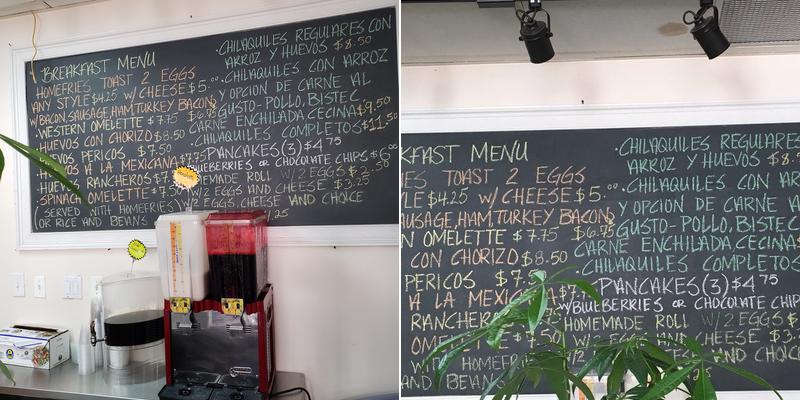 BREAKFAST MENU
HOMEFRIES TOAST 2 EGGS
ANY STYLE $4.25 W/ CHEESE $5.00
W/ BACON, SAUSAGE, HAM, TURKEY BACON $6.75
WESTERN OMELETTE $7.75
HUEVOS CON CHORIZO $8.50
HUEVOS PERICOS $7.50
HUEVOS A LA MEXICANA $7.75
HUEVOS RANCHEROS $7
SPINACH OMELETTE $7.50
(SERVED WITH HOMEFRIES
OR RICE AND BEANS
·CHILAQUILES REGULARES CON
ARROZ Y HUEVOS $8.50
·CHILAQUILES CON ARROZ
Y OPCION DE CARNE AL
GUSTO-POLLO, BISTEC
CARNE ENCHILADA CECINA $9.50
·CHILAQUILES COMPLETOS $11.50
·PANCAKES (3) $4.75
W/ BLUEBERRIES OR CHOCOLATE CHIPS $6.00
HOMEMADE ROLL W/ 2 EGGS $2.50
W/ 2 EGGS AND CHEESE $3.25
W/ 2 EGGS, CHEESE AND CHOICE
KFAST MENU
ES TOAST 2 EGGS
LE $4.25 W/ CHEESE $5.
AUSAGE, HAM, TURKEY BACON
N OMELETTE $7.75 $6.75
CON CHORIZO $8.50
PERICOS $7.5
A LA MEXICA
RANCHER
OMELETTE $7.50
WITH HOMEFR
AND BEANS
·CHILAQUILES REGULARES
ARROZ Y HUEVOS $8.
·CHILAQUILES CON AR
Y OPCION DE CARNE
GUSTO-POLLO, BISTEC
CARNE ENCHILADA CECINA
·CHILAQUILES COMPLETOS
·PANCAKES (3) $4.75
W/ BLUEBERRIES OR CHOCOLATE CHIP
HOMEMADE ROLL W/ 2 EGGS $
AND CHEESE $3.
AND CHOIC